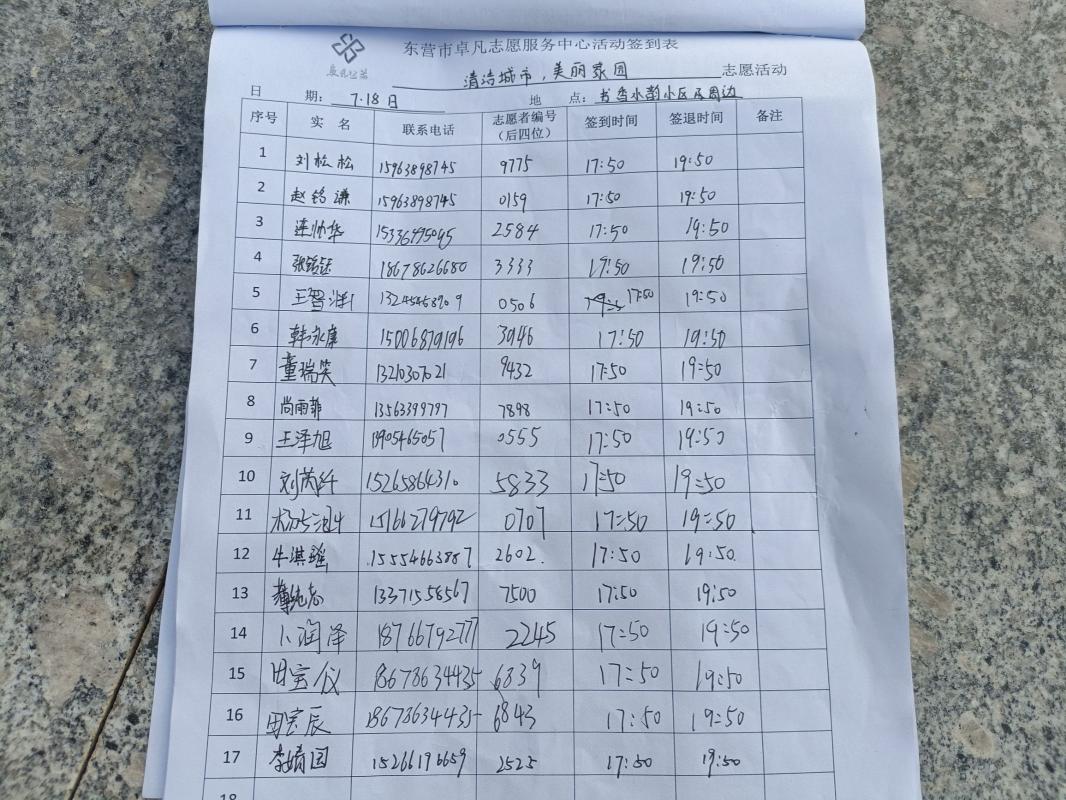 东营市卓凡志愿服务中心活动签到表
清洁城市,美丽家园 志愿活动
日 期: 7.18日 地 点: 书香水韵小区及周边
序号 实 名 联系电话 志愿者编号(后四位) 签到时间 签退时间 备注
1 刘松松 15963898745 9775 17:50 19:50
2 赵铭谦 15963898745 0159 17:50 19:50
3 连帅华 15336495045 2584 17:50 19:50
4 张铭钰 18678626680 3333 19:50 19:50
5 王智 0506 17:50 19:50
6 韩永康 15006879196 3946 17:50 19:50
7 董瑞笑 9432 17:50 19:50
8 尚雨菲 13563399797 7898 17:50 19:50
9 王泽旭 13905465057 0555 17:50 19:50
10 刘芮纤 15265864310 5833 17:50 19:50
11 15166279792 0707 17:50 19:50
12 牛淇瑶 15554663887 2602. 17:50 19:50.
13 13371558567 7500 17:50 19:50
14 卜润泽 18766792777 2245 17:50 19:50
15 田宝仪 18678634435 6839 17:50 19:50
16 田宝辰 18678634435 6843 17:50 19:50
17 李婧园 15266196659 2525 17:50 19:50
18